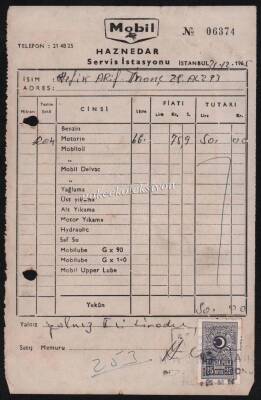 Mobil
№ 06374
TELEFON : 21 48 25
HAZNEDAR
Servis İstasyonu
İSTANBUL
İSİM :
ADRES:
Miktarı Teslim Şekli CİNSİ Litre FİATI Lira Kr. S. TUTARI Lira Kr.
Benzin
Motorin 66 75 9 50 00
Mobiloil
"
Mobil Delvac
"
Yağlama
Üst yıkama
Alt Yıkama
Motor Yıkama
Hydraulic
Saf Su
Mobilube G x 90
Mobilube G x 140
Mobil Upper Lube
Yekûn 50 00
Yalnız yalnız Elli liradır
Satış Memuru
253